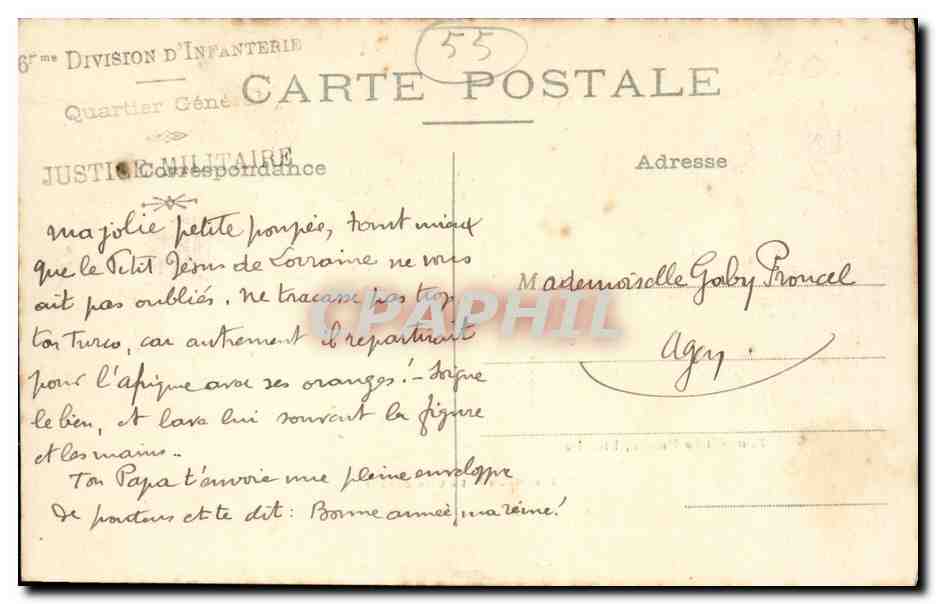 55
6me DIVISION D'INFANTERIE
Quartier Géné
CARTE POSTALE
JUSTICE MILITAIRE
Correspondance
Adresse
ma jolie petite poupée, tant mieux
que le Petit Jésus de Lorraine ne vous
ait pas oubliés. Ne tracasse pas trop
ton Turco, car autrement il repartirait
pour l'afrique avec ses oranges! - Soigne
le bien, et lave lui souvent la figure
et les mains..
Ton Papa t'envoie une pleine enveloppe
de poutous et te dit: Bonne année, ma reine!
Mademoiselle Gaby Proucel
Agen
CPAPHIL